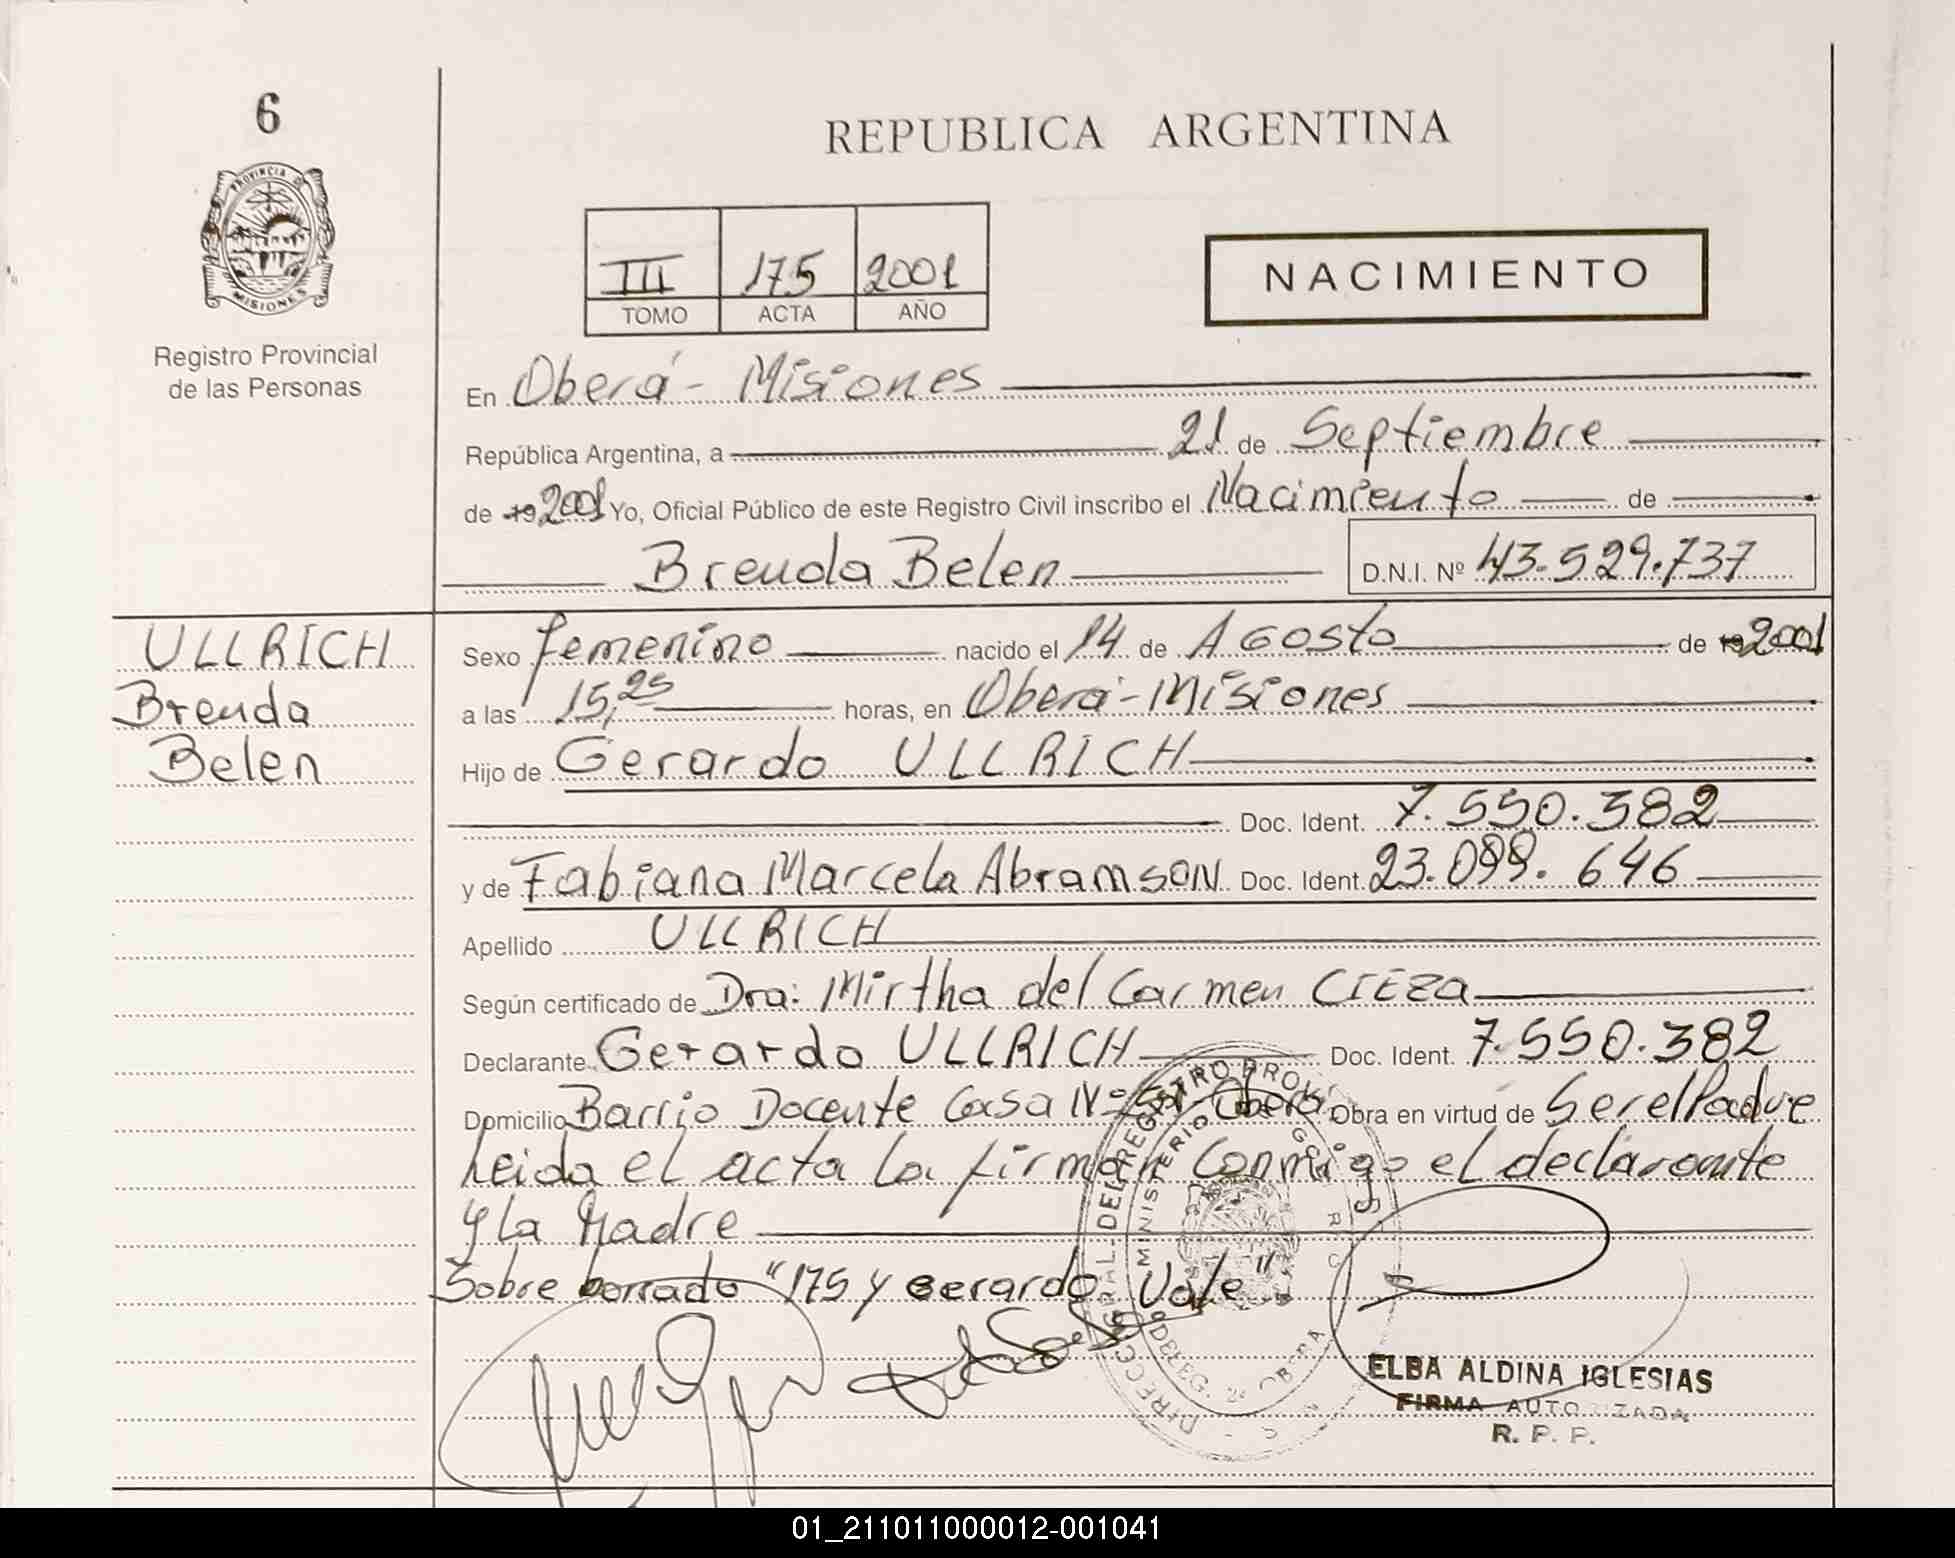 6
PROVINCIA DE
MISIONES
Registro Provincial
de las Personas
REPUBLICA ARGENTINA
III 175 2001
TOMO ACTA AÑO
NACIMIENTO
En Oberá - Misiones
República Argentina, a 21 de Septiembre
de 19 2001 Yo, Oficial Público de este Registro Civil inscribo el Nacimiento de
Brenda Belen D.N.I. Nº 43.529.737
ULLRICH
Brenda
Belen
Sexo femenino nacido el 14 de AGOSto de 19 2001
a las 15,25 horas, en Oberá - Misiones
Hijo de Gerardo ULLRICH
Doc. Ident. 7.550.382
y de Fabiana Marcela AbramSON Doc. Ident. 23.099.646
Apellido ULLRICH
Según certificado de Dra: Mirtha del Carmen CIEZa
Declarante Gerardo ULLRICH Doc. Ident. 7.550.382
Domicilio Barrio Docente Casa Nº Oberá Obra en virtud de Ser el Padre
Leida el acta la firman Conmigo el declarante
y La Madre
Sobre borrado "175 y Gerardo Vale"
ELBA ALDINA IGLESIAS
FIRMA AUTORIZADA
R. P. P.
01_211011000012-001041